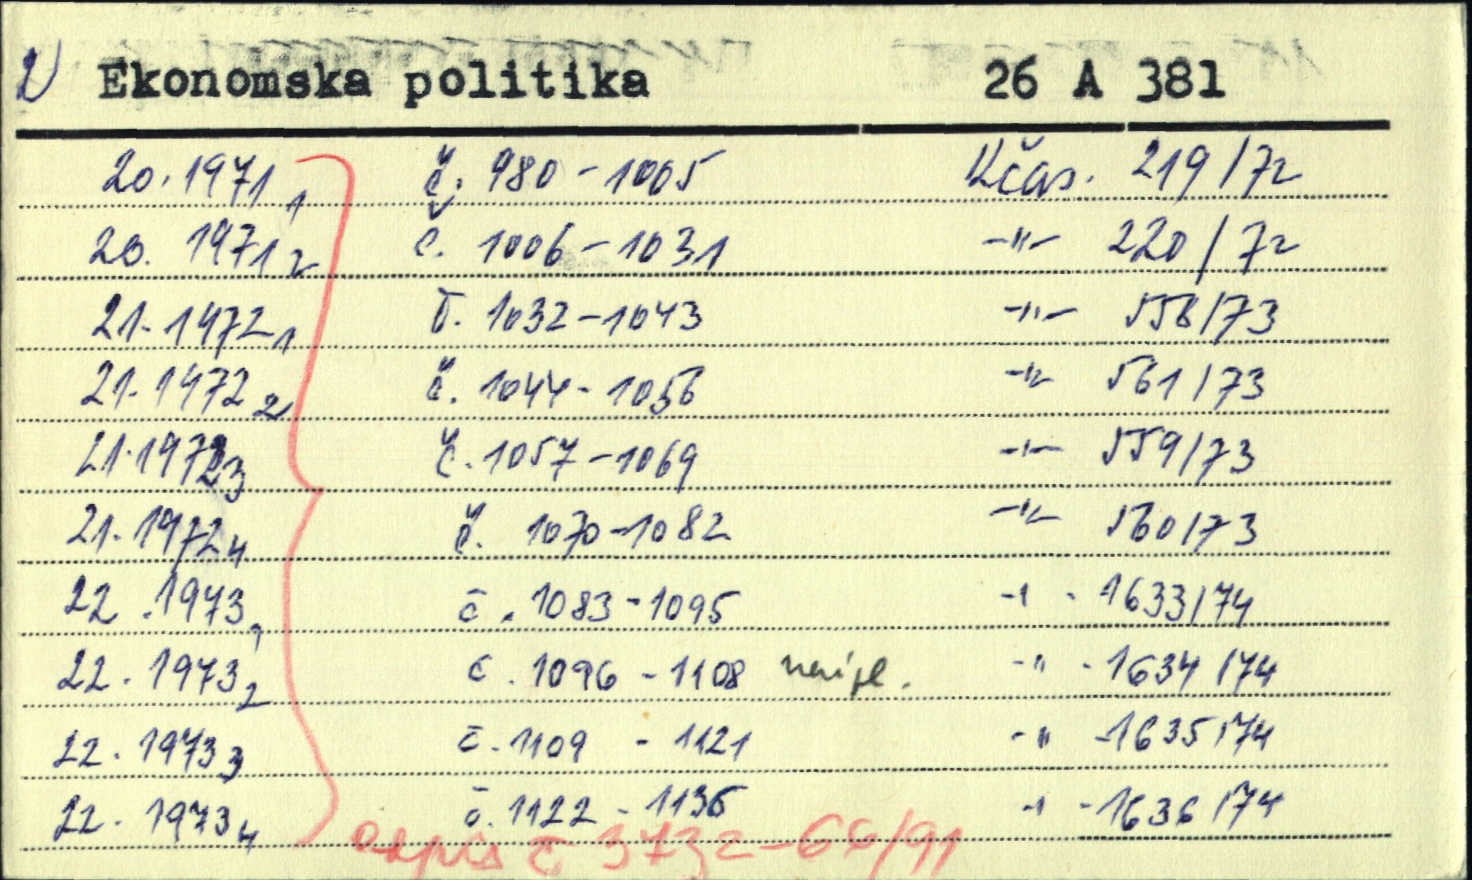 2) Ekonomska politika 26 A 381
20. 1971 1 č. 980 - 1005 Kčas. 219/72
20. 1971 2 č. 1006 - 1031 -"- 220/72
21. 1972 1 č. 1032 - 1043 -"- 558/73
21. 1972 2 č. 1044 - 1056 -"- 561/73
21. 1972 3 č. 1057 - 1069 -"- 559/73
21. 1972 4 č. 1070 - 1082 -"- 560/73
22. 1973 1 č. 1083 - 1095 -"- 1633/74
22. 1973 2 č. 1096 - 1108 neúpl. -"- 1634/74
22. 1973 3 č. 1109 - 1121 -"- 1635/74
22. 1973 4 č. 1122 - 1135 -"- 1636/74